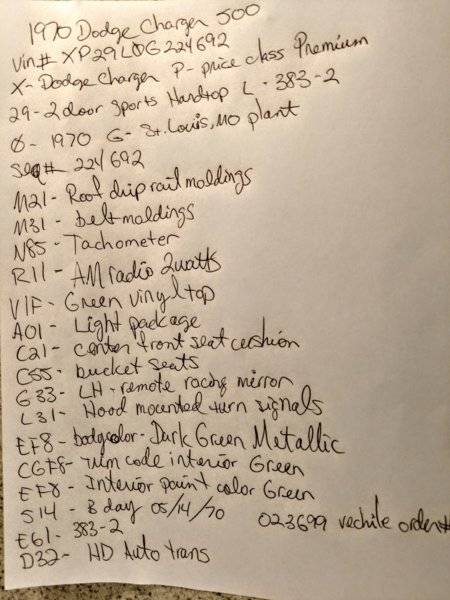 1970 Dodge Charger 500
Vin# XP29L0G224692
X- Dodge Charger P- price class Premium
29- 2 door sports Hardtop L - 383-2
0- 1970 G- St. Louis, MO plant
seq# 224692
M21- Roof drip rail moldings
M31- belt moldings
N85- Tachometer
R11- AM radio 2watts
V1F- Green vinyl top
A01- Light package
C21- center front seat cushion
C55- bucket seats
G33- LH-remote racing mirror
L31- Hood mounted turn signals
EF8- bodycolor- Dark Green Metallic
CGF8- trim code interior Green
EF8- Interior paint color Green
514 - B day 05/14/70 023699 vechile order#
E61- 383-2
D32- HD Auto trans